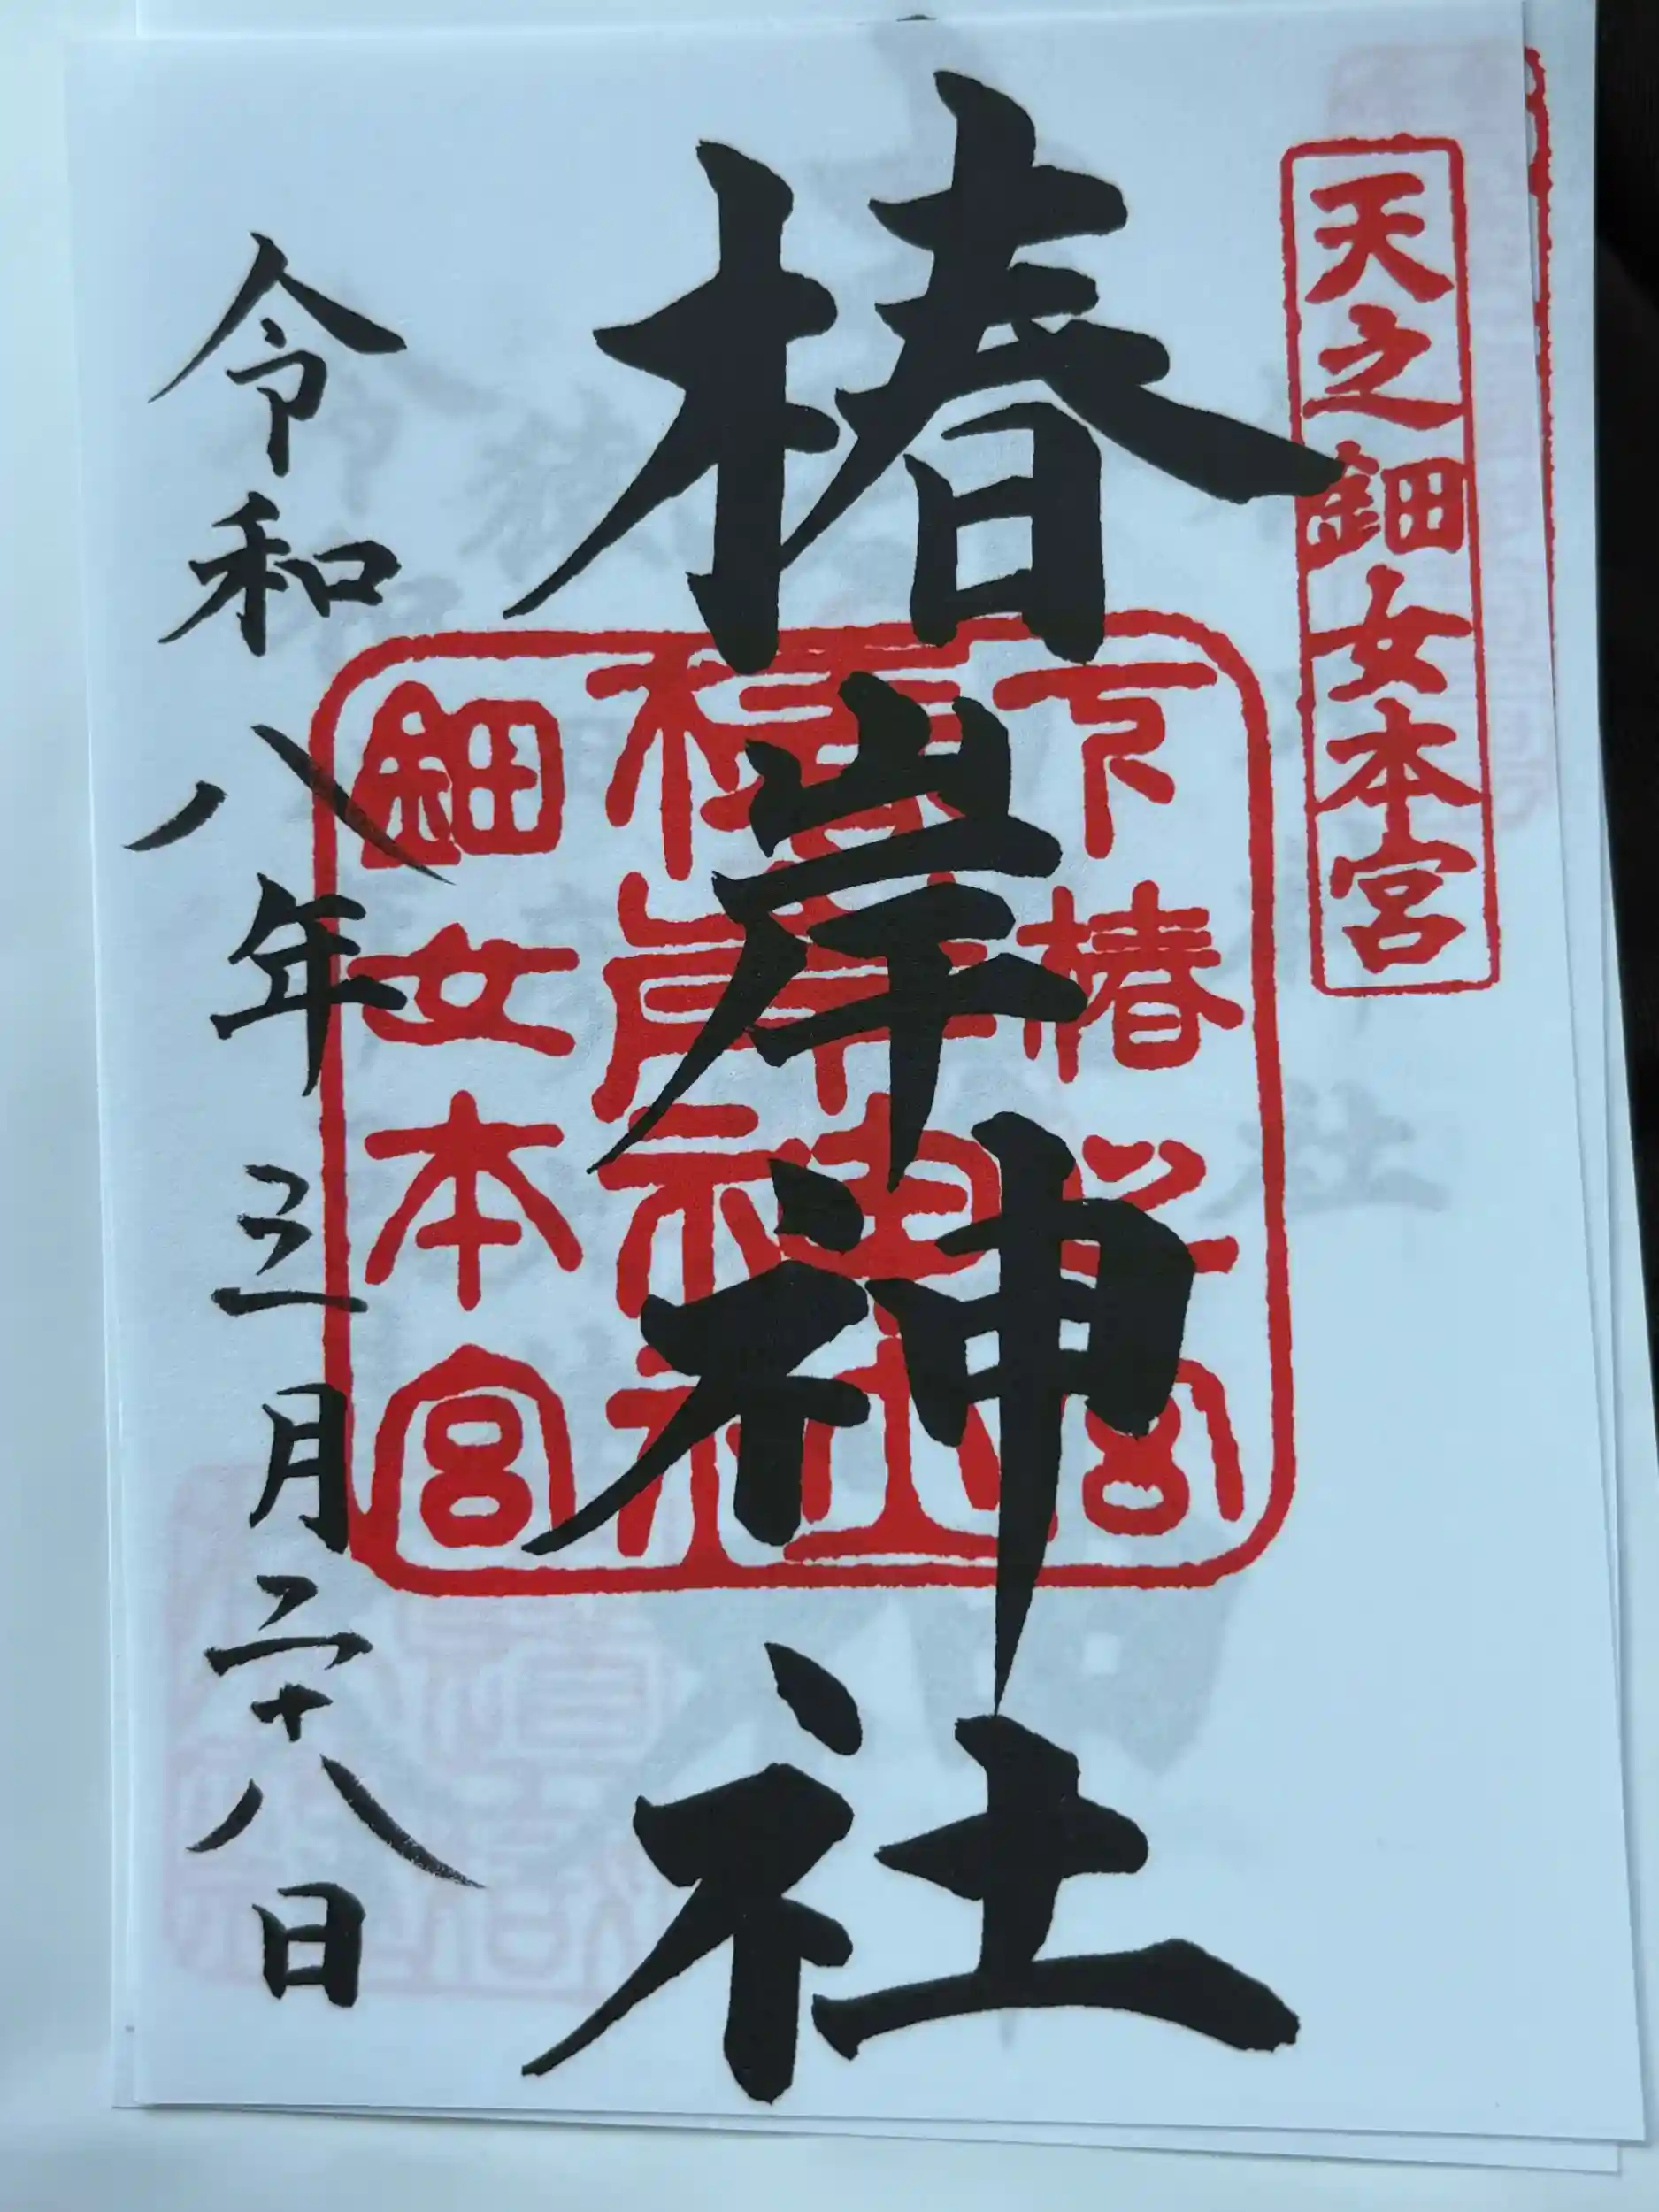 天之鈿女本宮
椿岸神社
下椿
椿岸神社
鈿女本宮
令和八年三月二十八日